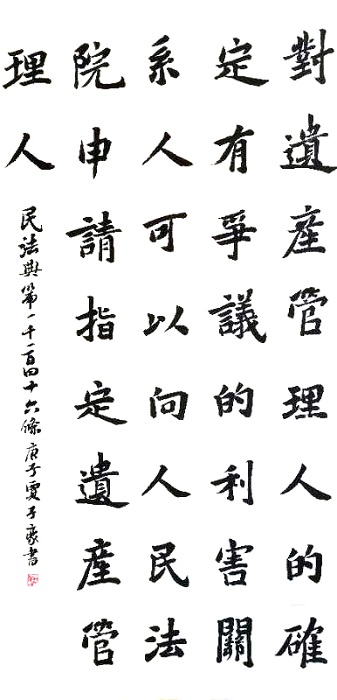 對遺産管理人的確
定有爭議的利害關
系人可以向人民法
院申請指定遺産管
理人
民法典第一千一百四十六條 庚子 子豪書